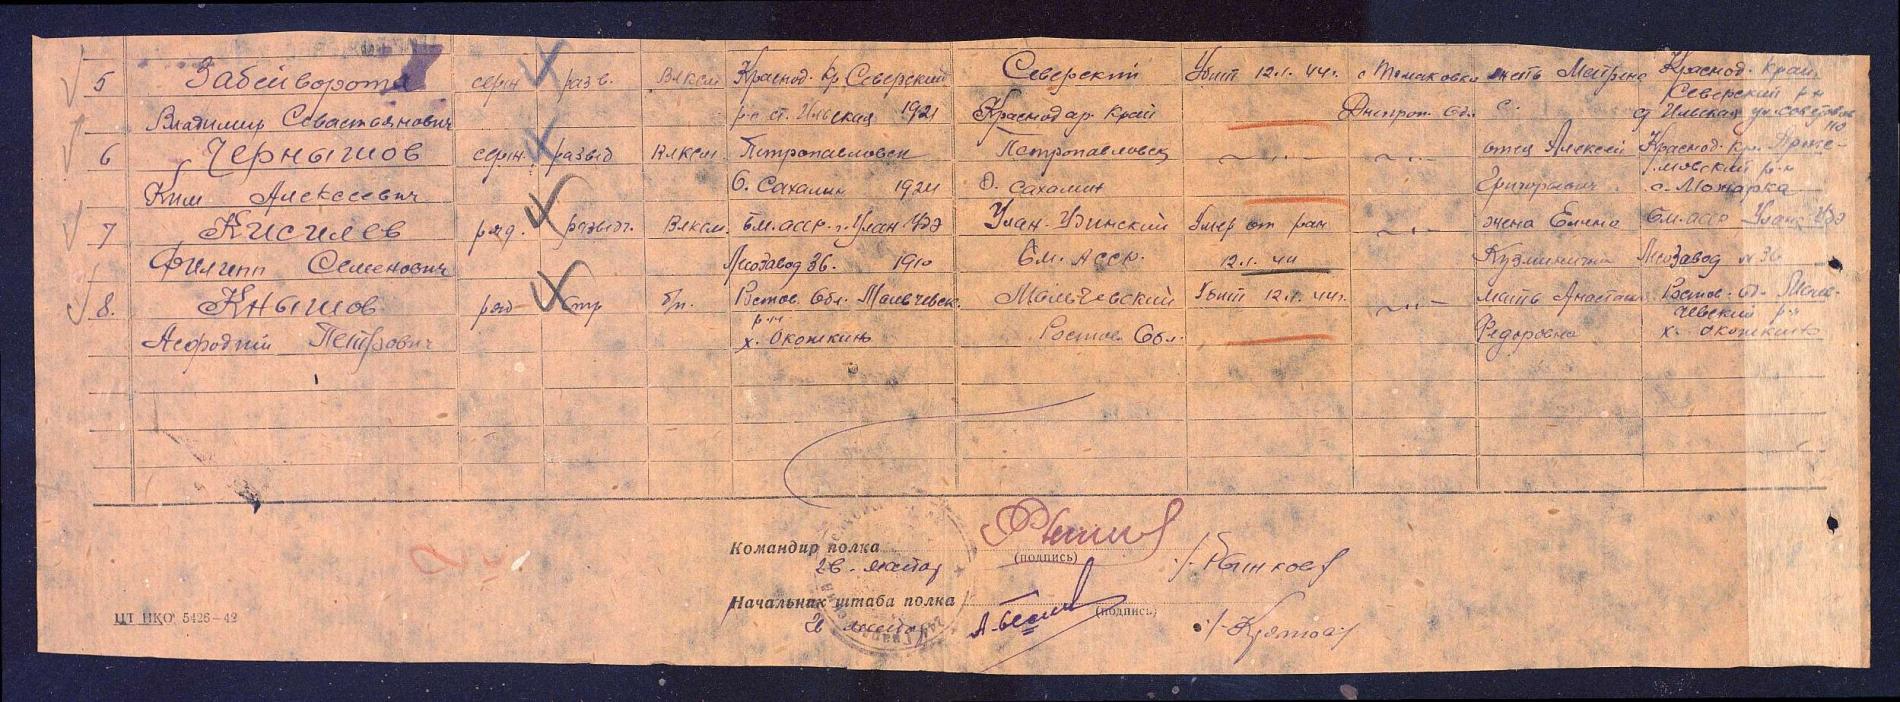 5 Забейворота серж разв. ВЛКСМ Краснод. Кр. Северский Северский Убит 12.1.44г. с Томаковка мать Матрена Краснод. Край
Северский р-н
Владимир Севастьянович р-н ст. Ильская 1921 Краснодар. Край Днепроп. Обл. с. ст Ильская ул. Советская
110
6 Чернышов серж. развед ВЛКСМ Петропавловск Петропавловск — „ — — „ — отец Алексей Краснод. Кр.
р-н
Ким Алексеевич О. Сахалин 1924 О. Сахалин Григорьевич с. Можарка
7 Кисилев ряд. разведч. ВЛКСМ Бм. АССР. г. Улан Удэ Улан-Удинский Умер от ран — „ — жена Елена Бм. АССР Улан Удэ
Филипп Семенович Лесозавод 36. 1910 Бм. АССР. 12.1.44 Кузминична Лесозавод № 36
8. Кнышов ряд стр б/п. Ростов. Обл. Мальчевск. Мальчевский Убит 12.1.44г. — „ — мать Анастас. Ростов. об. Маль-
р-н чевский р-н
Петрович х. Окошкинь Ростов. Обл. Федоровна х. Окошкино
Командир полка
(подпись)
гв. майор
Начальник штаба полка
(подпись)
гв майор
ЦТ НКО 5426—42